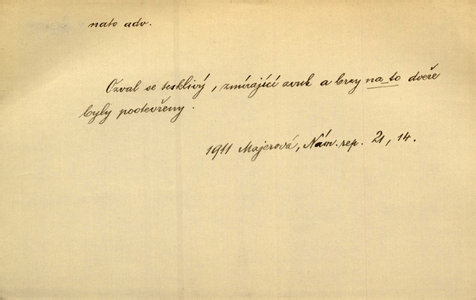 nato adv.
Ozval se tesklivý, zmírající zvuk a brzy na to dveře
byly pootevřeny.
1911 Majerová, Nám. rep. 21, 14.